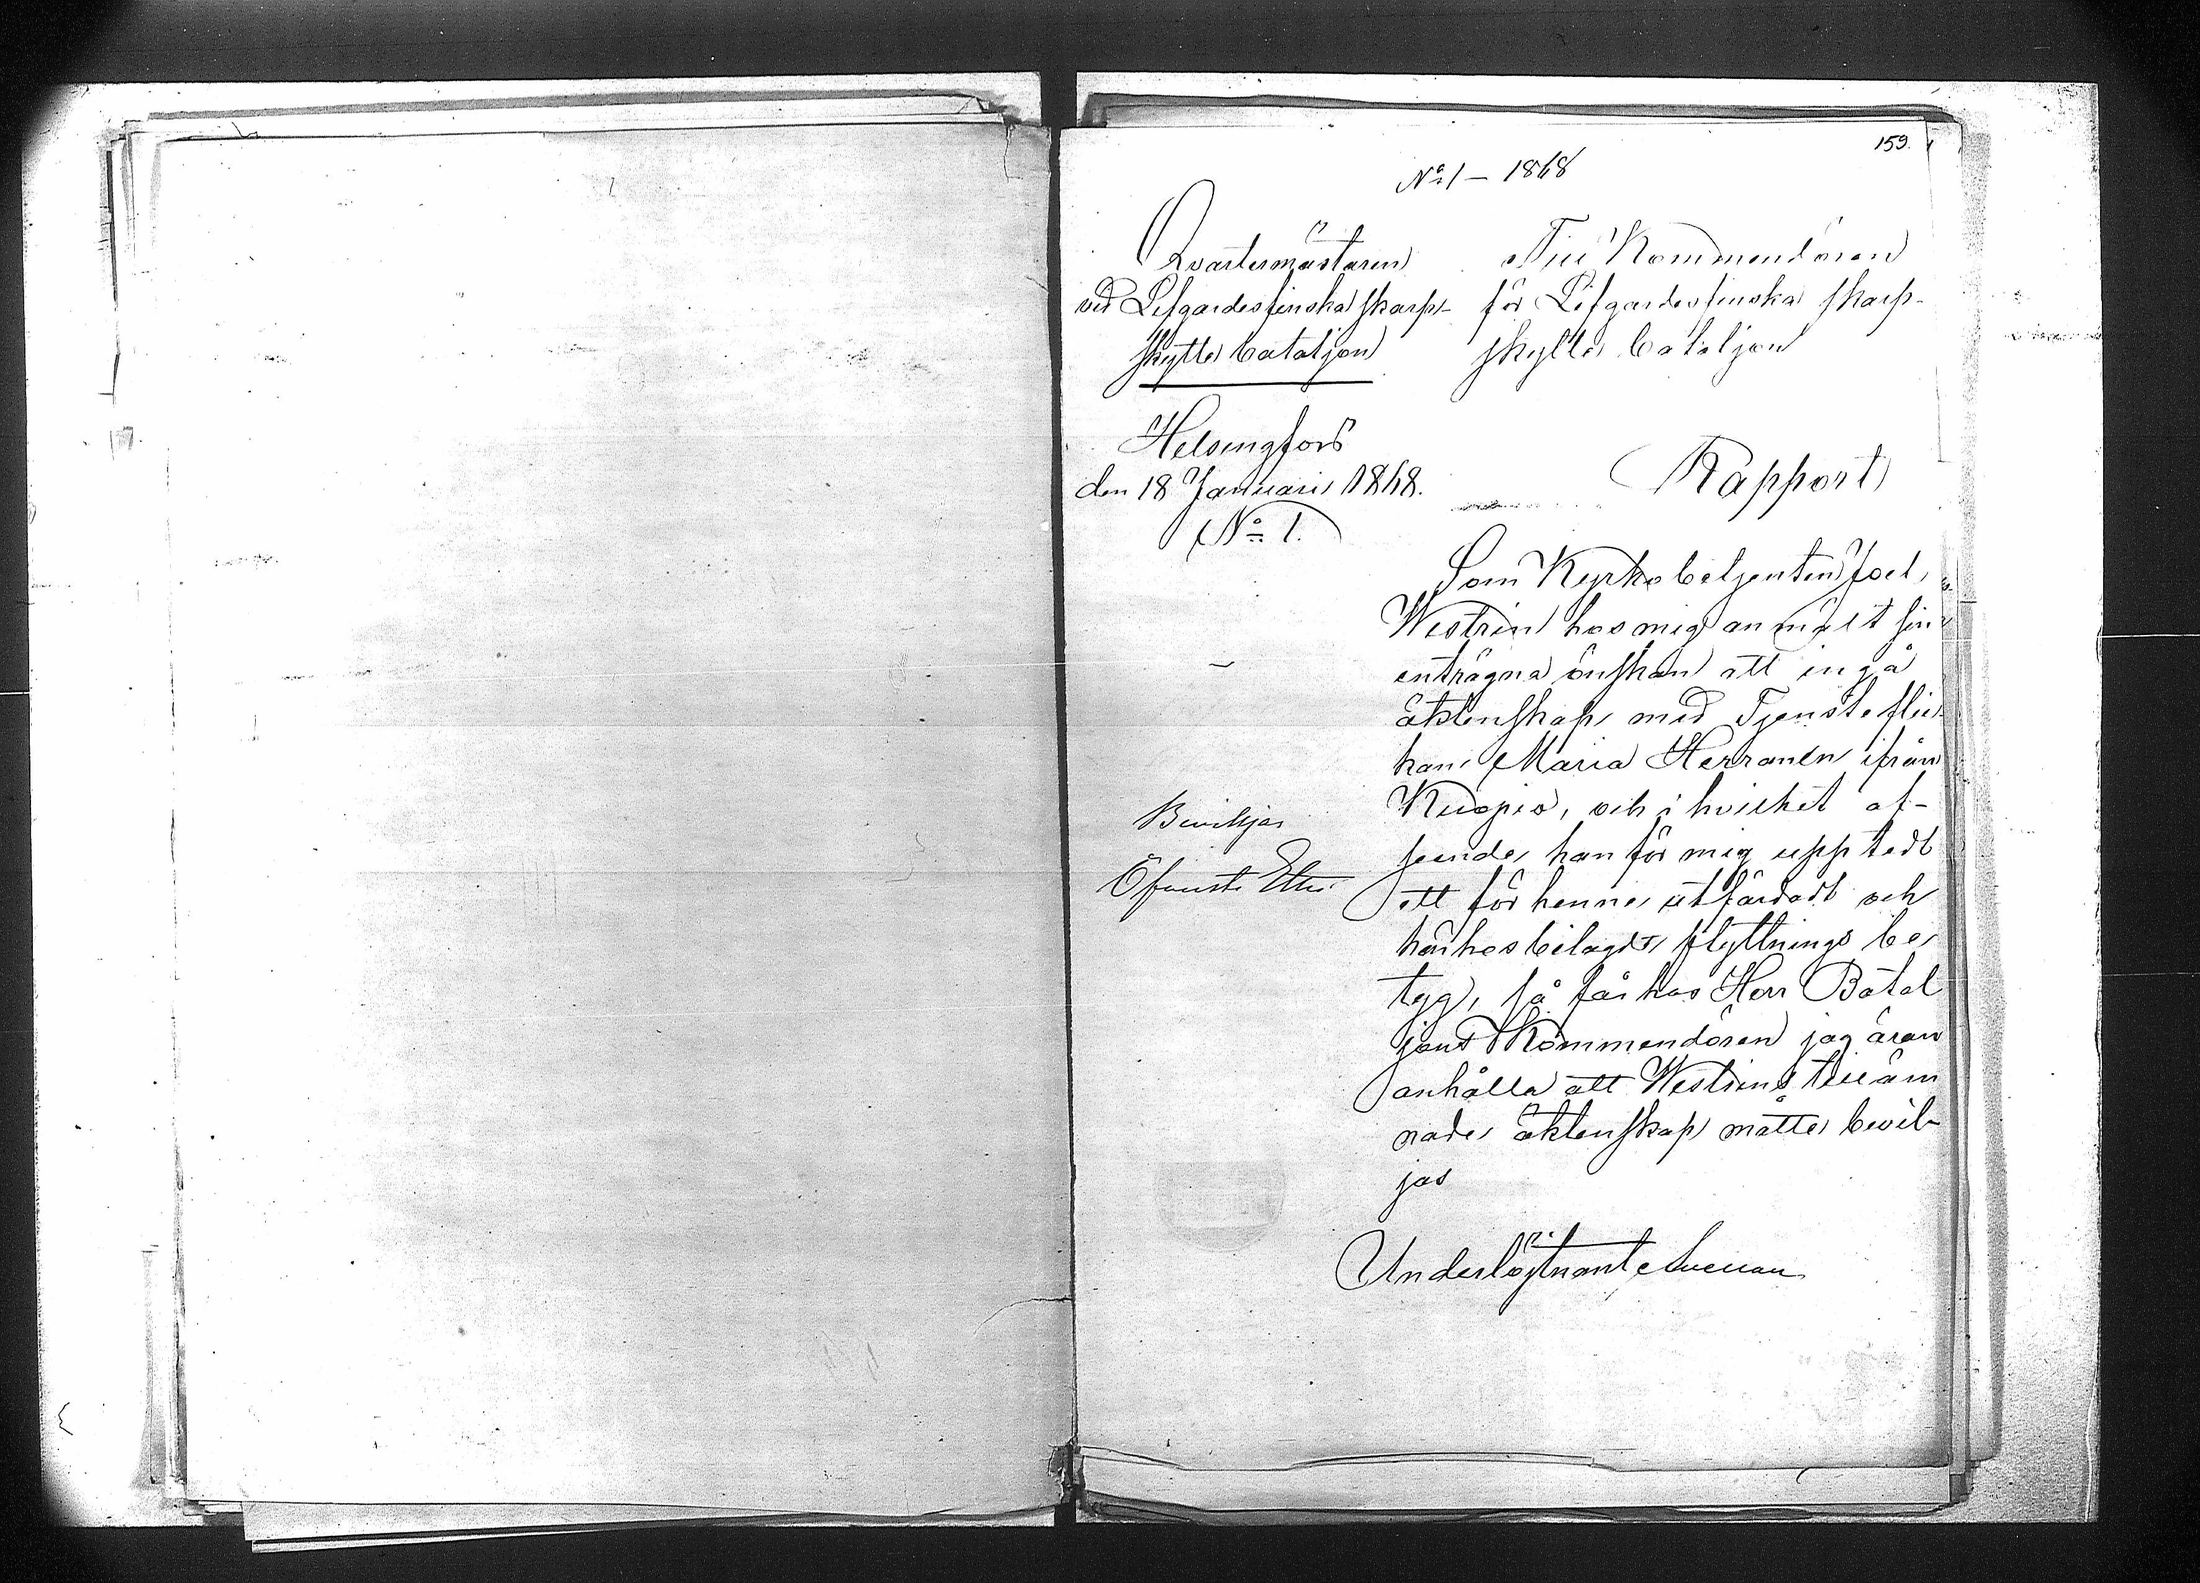 159.
No 1 – 1868
Qvartermästaren
vid Lifgardesfinska skarp-
skytte bataljon
Helsingfors
den 18 Januari 1868.
No 1.
Till Kommendören
för Lifgardesfinska skarp-
skytte bataljon
Rapport
Som Kyrkobetjenten Joel
Westrin hos mig anmält sin
enträgna önskan att ingå
äktenskap med Tjensteflic-
kan Maria Herranen ifrån
Kuopio, och i hvilket af-
seende han för mig upptedt
ett för henne utfärdadt och
härhos bilagdt flyttnings be
tyg, så får hos Herr Batal
jons Kommendören jag äran
anhålla att Westrins tilläm
nade äktenskap måtte bevil-
jas
Beviljas
Öfverste
Underlöjtnant